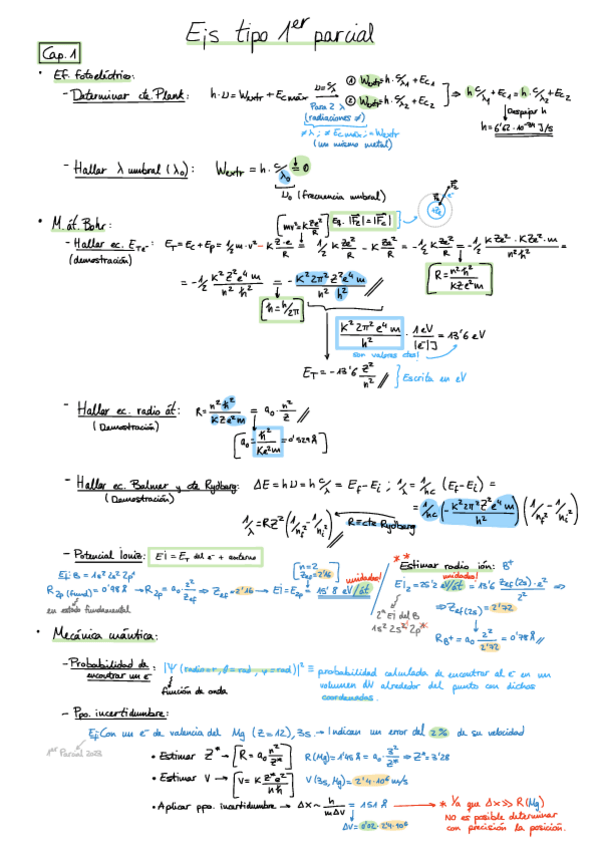 Ejs tipo 1er parcial
Cap. 1
• Ef. fotoeléctrico:
- Determinar cte. Plank: h·υ = Wextr + Ec máx υ=c/λ → ① Wextr = h·c/λ1 + Ec1 ② Wextr = h·c/λ2 + Ec2 ⇒ h c/λ1 + Ec1 = h·c/λ2 + Ec2
Para 2 λ
(radiaciones ≠)
≠λ ; ≠Ec máx ; = Wextr
(un mismo metal)
Despejar h
h = 6'62·10^-34 J/s
- Hallar λ umbral (λ0): Wextr = h·c/λ0 = 0
υ0 (frecuencia umbral)
• M. át. Bohr:
[mv² = K Ze²/R] Eq. |Fc| = |Fe|
- Hallar ec. ETe: ET = Ec + Ep = 1/2 m·v² - K Z·e/R = 1/2 K Ze²/R - K Ze²/R = -1/2 K Ze²/R = -1/2 K Ze²·K Ze²·m / n²ħ² =
(demostración)
[R = n²ħ² / KZe²m]
= -1/2 K²Z²e⁴m / n²ħ² = - K²2π²Z²e⁴m / n²h² //
[ħ = h/2π]
K²2π²e⁴m / h² · 1eV / |e|J = 13'6 eV
son valores ctes!
ET = -13'6 Z²/n² // } Escrita en eV
- Hallar ec. radio át: R = n²ħ² / KZe²m = a0·n²/Z //
(Demostración)
[a0 = ħ² / Ke²m = 0'529 Å]
- Hallar ec. Balmer y cte Rydberg: ΔE = hυ = h c/λ = Ef - Ei ; 1/λ = 1/hc (Ef - Ei) =
(Demostración)
= 1/hc (- K²2π²Z²e⁴m / h²) (1/nf² - 1/ni²)
1/λ = RZ² (1/nf² - 1/ni²) R = cte Rydberg
- Potencial Ioniz: Ei = ET del e⁻ + externo
Ej: B = 1s² 2s² 2p¹
R2p (fund) = 0'98 Å → R2p = a0·2²/Zef → Zef = 2'16 → Ei = E2p = 15'8 eV/át
en estado fundamental
[n=2 Zef = 2'16]
unidades!
** Estimar radio ión: B⁺
Ei2 = 25'2 eV/át = 13'6 Zef(2s)·e² / 2² ⇒
unidades!
2ª Ei del B
1s² 2s² 2p*
⇒ Zef(2s) = 2'72
RB⁺ = a0 2²/2'72 = 0'78 Å //
• Mecánica cuántica:
- Probabilidad de encontrar un e⁻: |Ψ (radio=r, θ=rad, φ=rad)|² ≡ probabilidad calculada de encontrar el e⁻ en un
volumen dV alrededor del punto con dichas
coordenadas.
función de onda
- Ppo. incertidumbre:
Ej: Con un e⁻ de valencia del Mg (Z=12), 3s → Indican un error del 2% de su velocidad
1er Parcial 2022
• Estimar Z* → [R = a0 n²/Z*] R(Mg) = 1'45 Å = a0 3²/Z* ⇒ Z* = 3'28
• Estimar V → [V = K Z*e²/nħ] V(3s, Mg) = 2'4·10⁶ m/s
• Aplicar ppo. incertidumbre → Δx ~ ħ/mΔV = 151 Å → * Ya que Δx >> R(Mg)
ΔV = 0'02·2'4·10⁶
NO es posible determinar
con precisión la posición.